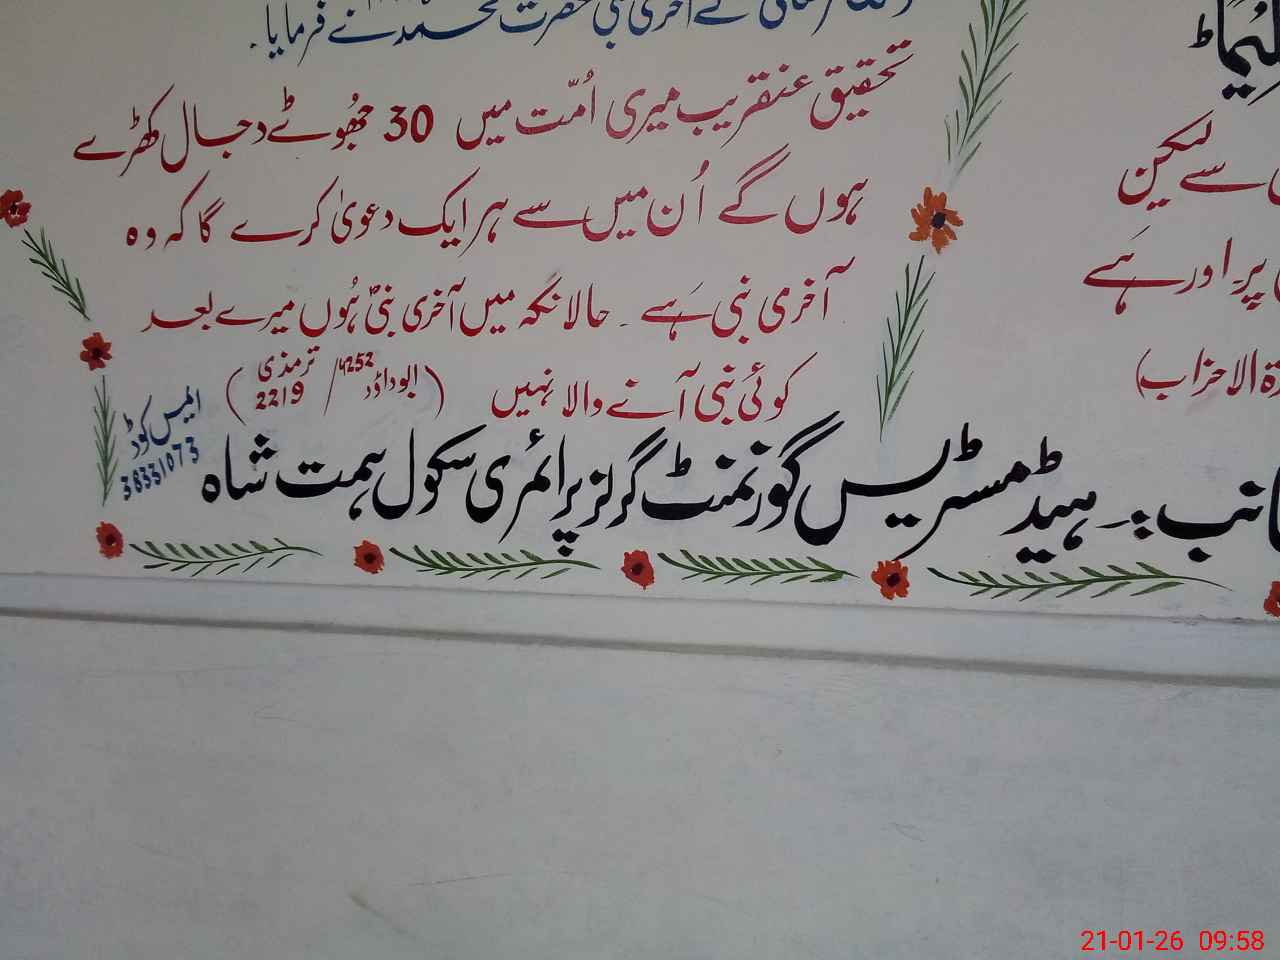 کے آخری نبی حضرت محمد نے فرمایا۔
تحقیق عنقریب میری اُمّت میں 30 جھُوٹے دجال کھڑے
ہوں گے اُن میں سے ہر ایک دعویٰ کرے گا کہ وہ
آخری نبی ہَے ۔ حالانکہ میں آخری نبیؐ ہُوں میرے بعد
کوئی نبی آنے والا نہیں (ابوداؤد 4252 / ترمذی 2219)
سے لیکن
پر اور ہَے
الاحزاب)
ایمس کوڈ
38331073
پر ۔ ہیڈ مسٹریس گورنمنٹ گرلز پرائمری سکول ہمت شاہ
21-01-26 09:58